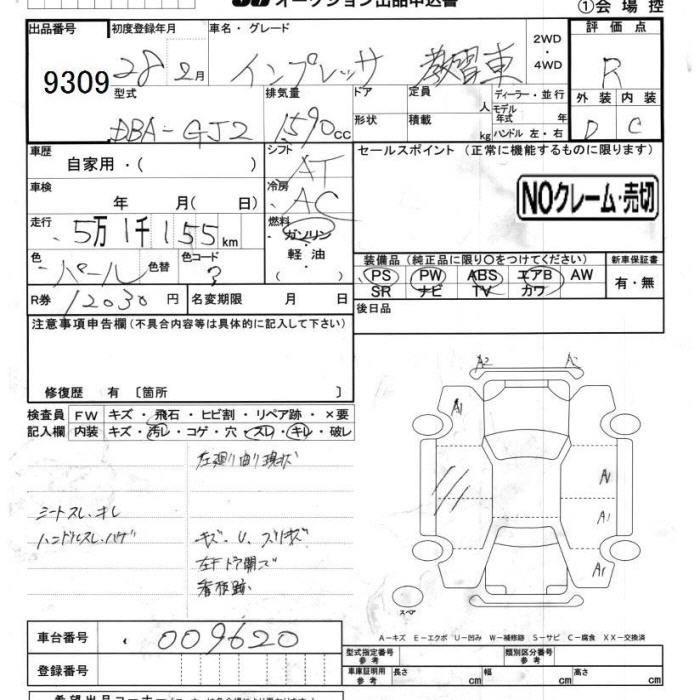 オークション出品申込書
①会場控
出品番号 初度登録年月 車名・グレード 2WD・4WD 評価点
9309 28 2月 インプレッサ 教習車 R
型式 排気量 ドア 定員 人 ディーラー・並行 外装 内装
DBA-GJ2 1590cc 形状 積載 kg モデル年式 年 ハンドル 左・右 D C
車歴 シフト セールスポイント (正常に機能するものに限ります)
自家用・( ) AT
車検 冷房 NOクレーム・売切
年 月( 日) AC
走行 燃料
5万1千155km ガソリン・軽油・( )
色 色替 色コード 装備品(純正品に限り○をつけてください) 新車保証書
パール ? PS PW ABS エアB AW 有・無
SR ナビ TV カワ
R券 12030円 名変期限 月 日 後日品
注意事項申告欄(不具合内容等は具体的に記入して下さい)
修復歴 有 〔箇所 〕
検査員 FW キズ・飛石・ヒビ割・リペア跡・×要
記入欄 内装 キズ・汚レ・コゲ・穴・スレ・キレ・破レ
A2
A1
左廻り曲り現状
シートスレ、キレ
ハンドルスレ、ハゲ
キズ、U、スリキズ
左Fドア開で
看板跡
A1
A1
スペア
車台番号 009620
登録番号
A-キズ E-エクボ U-凹み W-補修跡 S-サビ C-腐食 XX-交換済
型式指定番号 参考 類別区分番号 参考
車庫証明用 参考 長さ cm 幅 cm 高さ cm